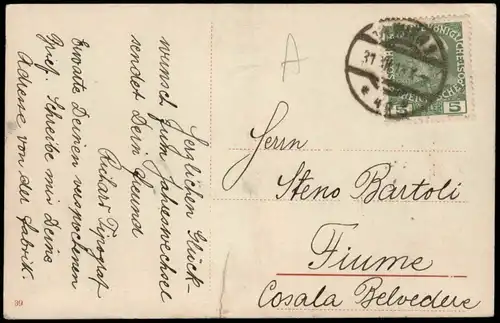 Herzlichen Glück
wunsch zum Jahreswechsel
sendet Dein freund
Richard Tipograf
Erwarte Deinen versprochenen
Brief. Schreibe mir Deine
Adresse von der fabrik.
A
31
5
5
Herrn
Steno Bartoli
Fiume
Cosala Belvedere
99